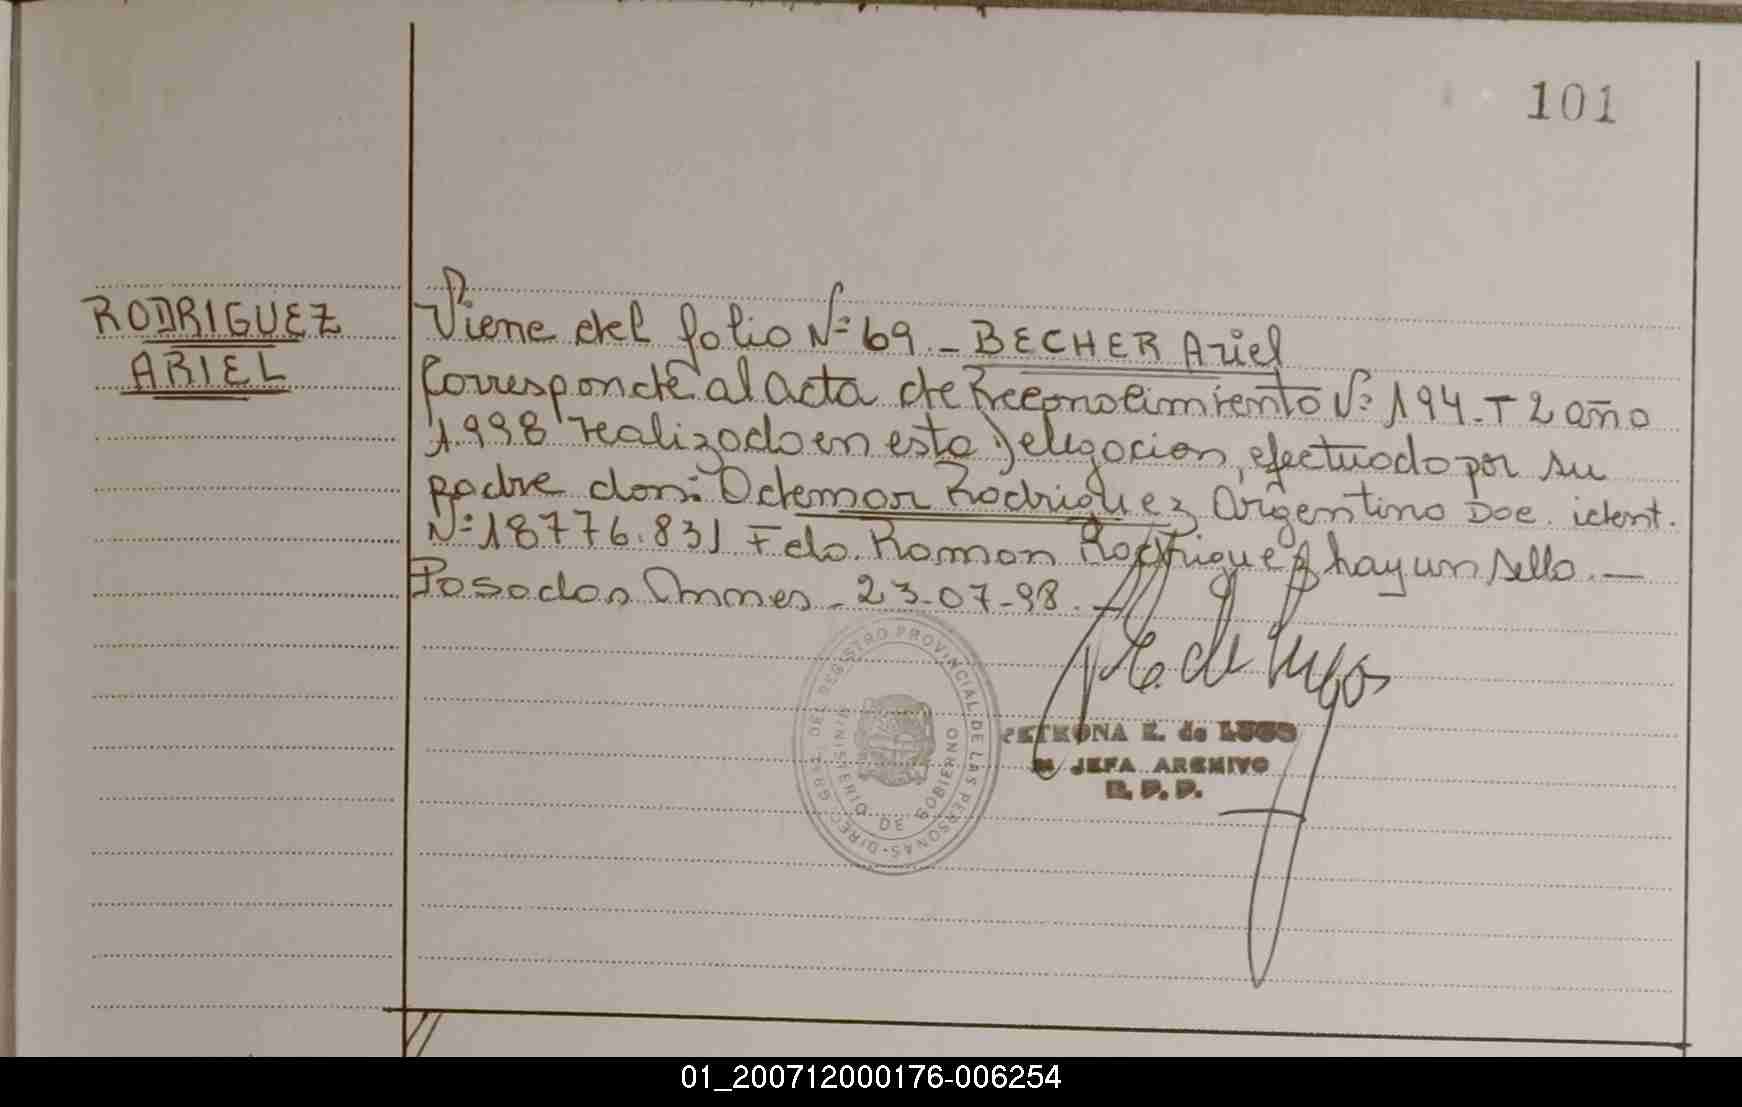 101
RODRIGUEZ
ARIEL
Viene del folio Nº 69 - BECHER Ariel
Corresponde al acta de Reconocimiento Nº 194 - T 2 año
1.998 realizado en esta Delegacion, efectuado por su
padre don: Odemar Rodriguez Argentino Doc. ident.
Nº 18776.831 Fdo. Ramon Rodriguez hay un sello. —
Posadas Mnes - 23-07-98. -
DIREC. GRAL. DEL REGISTRO PROVINCIAL DE LAS PERSONAS
MINISTERIO DE GOBIERNO
PETRONA E. de LUGO
JEFA ARCHIVO
R. P. P.
01_200712000176-006254